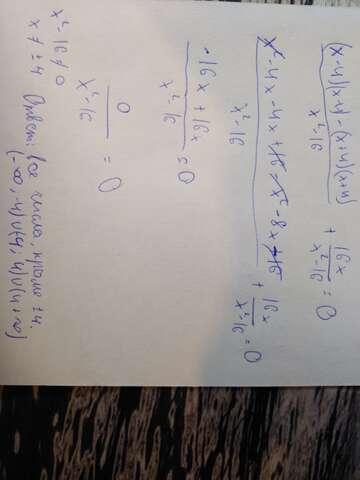 (x-4)(x-4)-(x+4)(x+4)/x²-16 + 16x/x²-16 = 0
x²-4x-4x+16-x²-8x-16/x²-16 + 16x/x²-16 = 0
-16x+16x/x²-16 = 0
0/x²-16 = 0
x²-16≠0
x≠±4 Ответ: все числа, кроме ±4.
(-∞, -4)∪(-4, 4)∪(4, +∞)